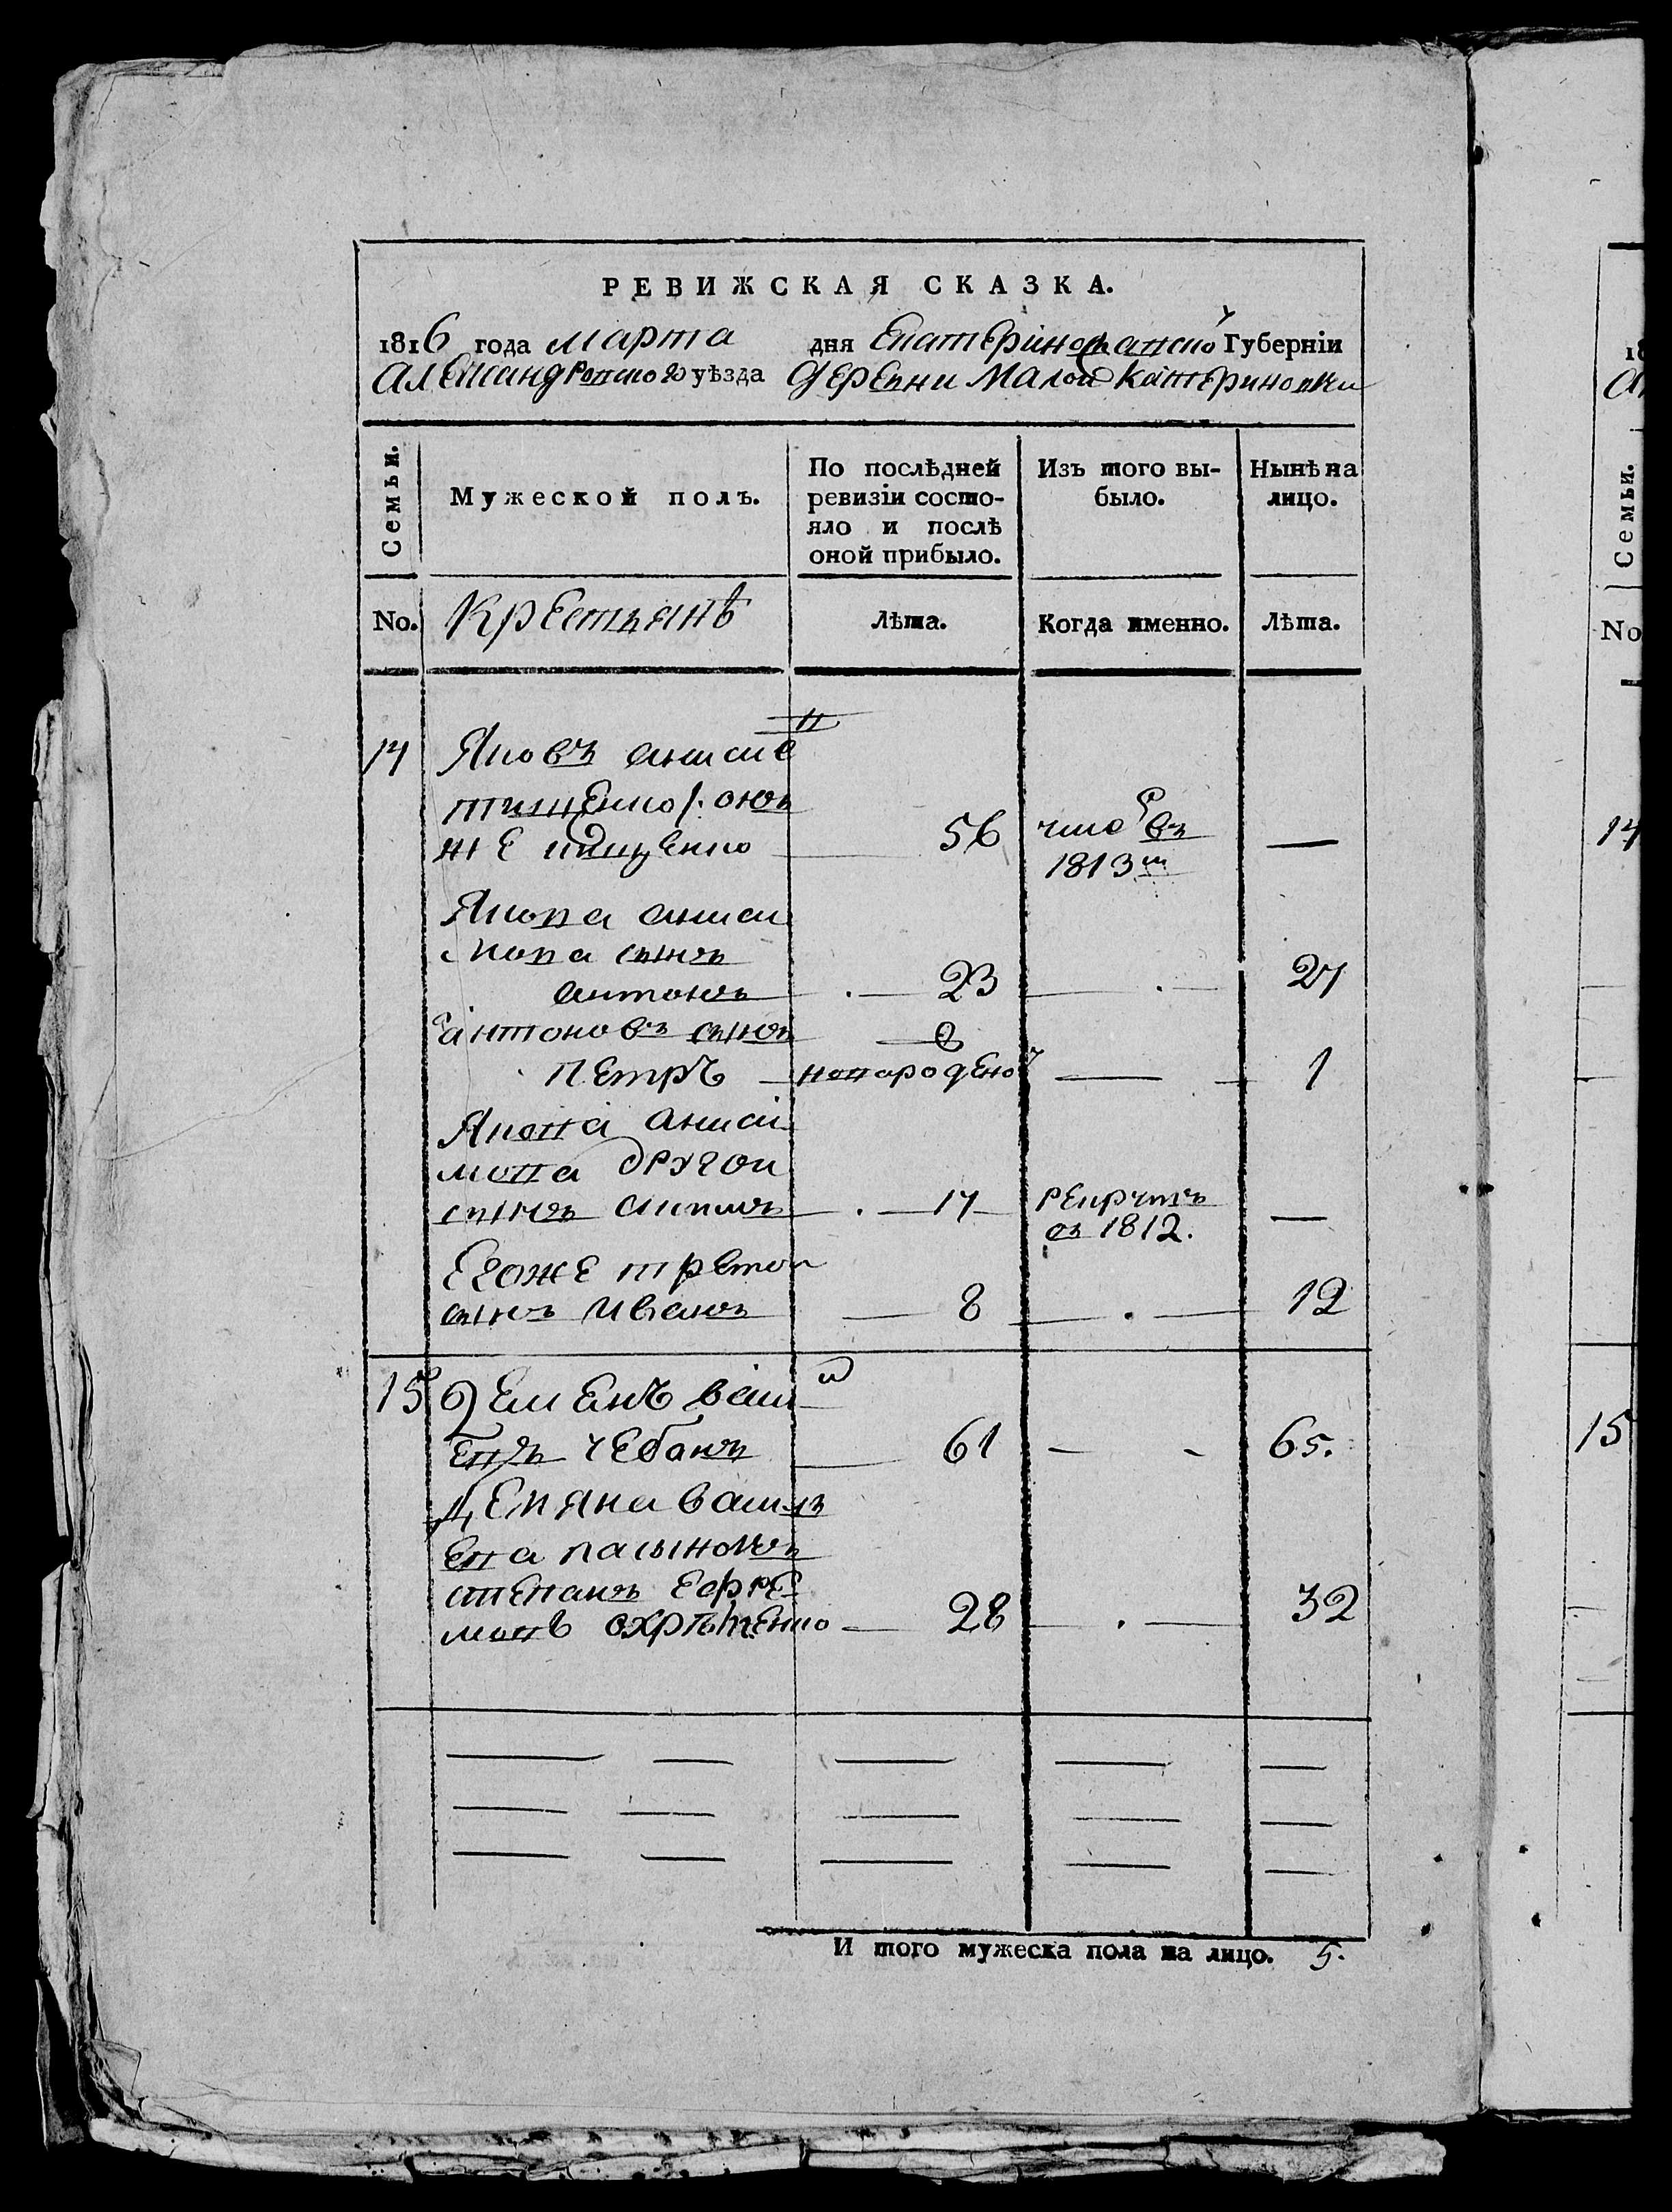 РЕВИЖСКАЯ СКАЗКА.
1816 года марта дня Екатеринославской Губерніи
Александровского уѣзда деревни Малой Катериновки
Семьи.
Мужеской полъ.
По послѣдней ревизіи состо-
яло и послѣ
оной прибыло.
Изъ того вы-
было.
Нынѣ на
лицо.
No.
Крестьянъ
Лѣта.
Когда именно.
Лѣта.
14 Яковъ аниси
тищенко /: онъ
же 56 въ —
1813м
Якова аниси
мова сынъ
антонъ 23 27
антоновъ сынъ
Петръ новорожденой 1
Якова аниси
мова другой
сынъ 17 рекрутъ —
въ 1812.
Егоже третои
сынъ иванъ 8 12
15 Демянъ васил
евъ чебанъ 61 65.
Демяна василь
ева пасынокъ
степанъ ефре
мовъ 28 32
И того мужеска пола на лицо. 5.
18
Семьи.
No
14
15